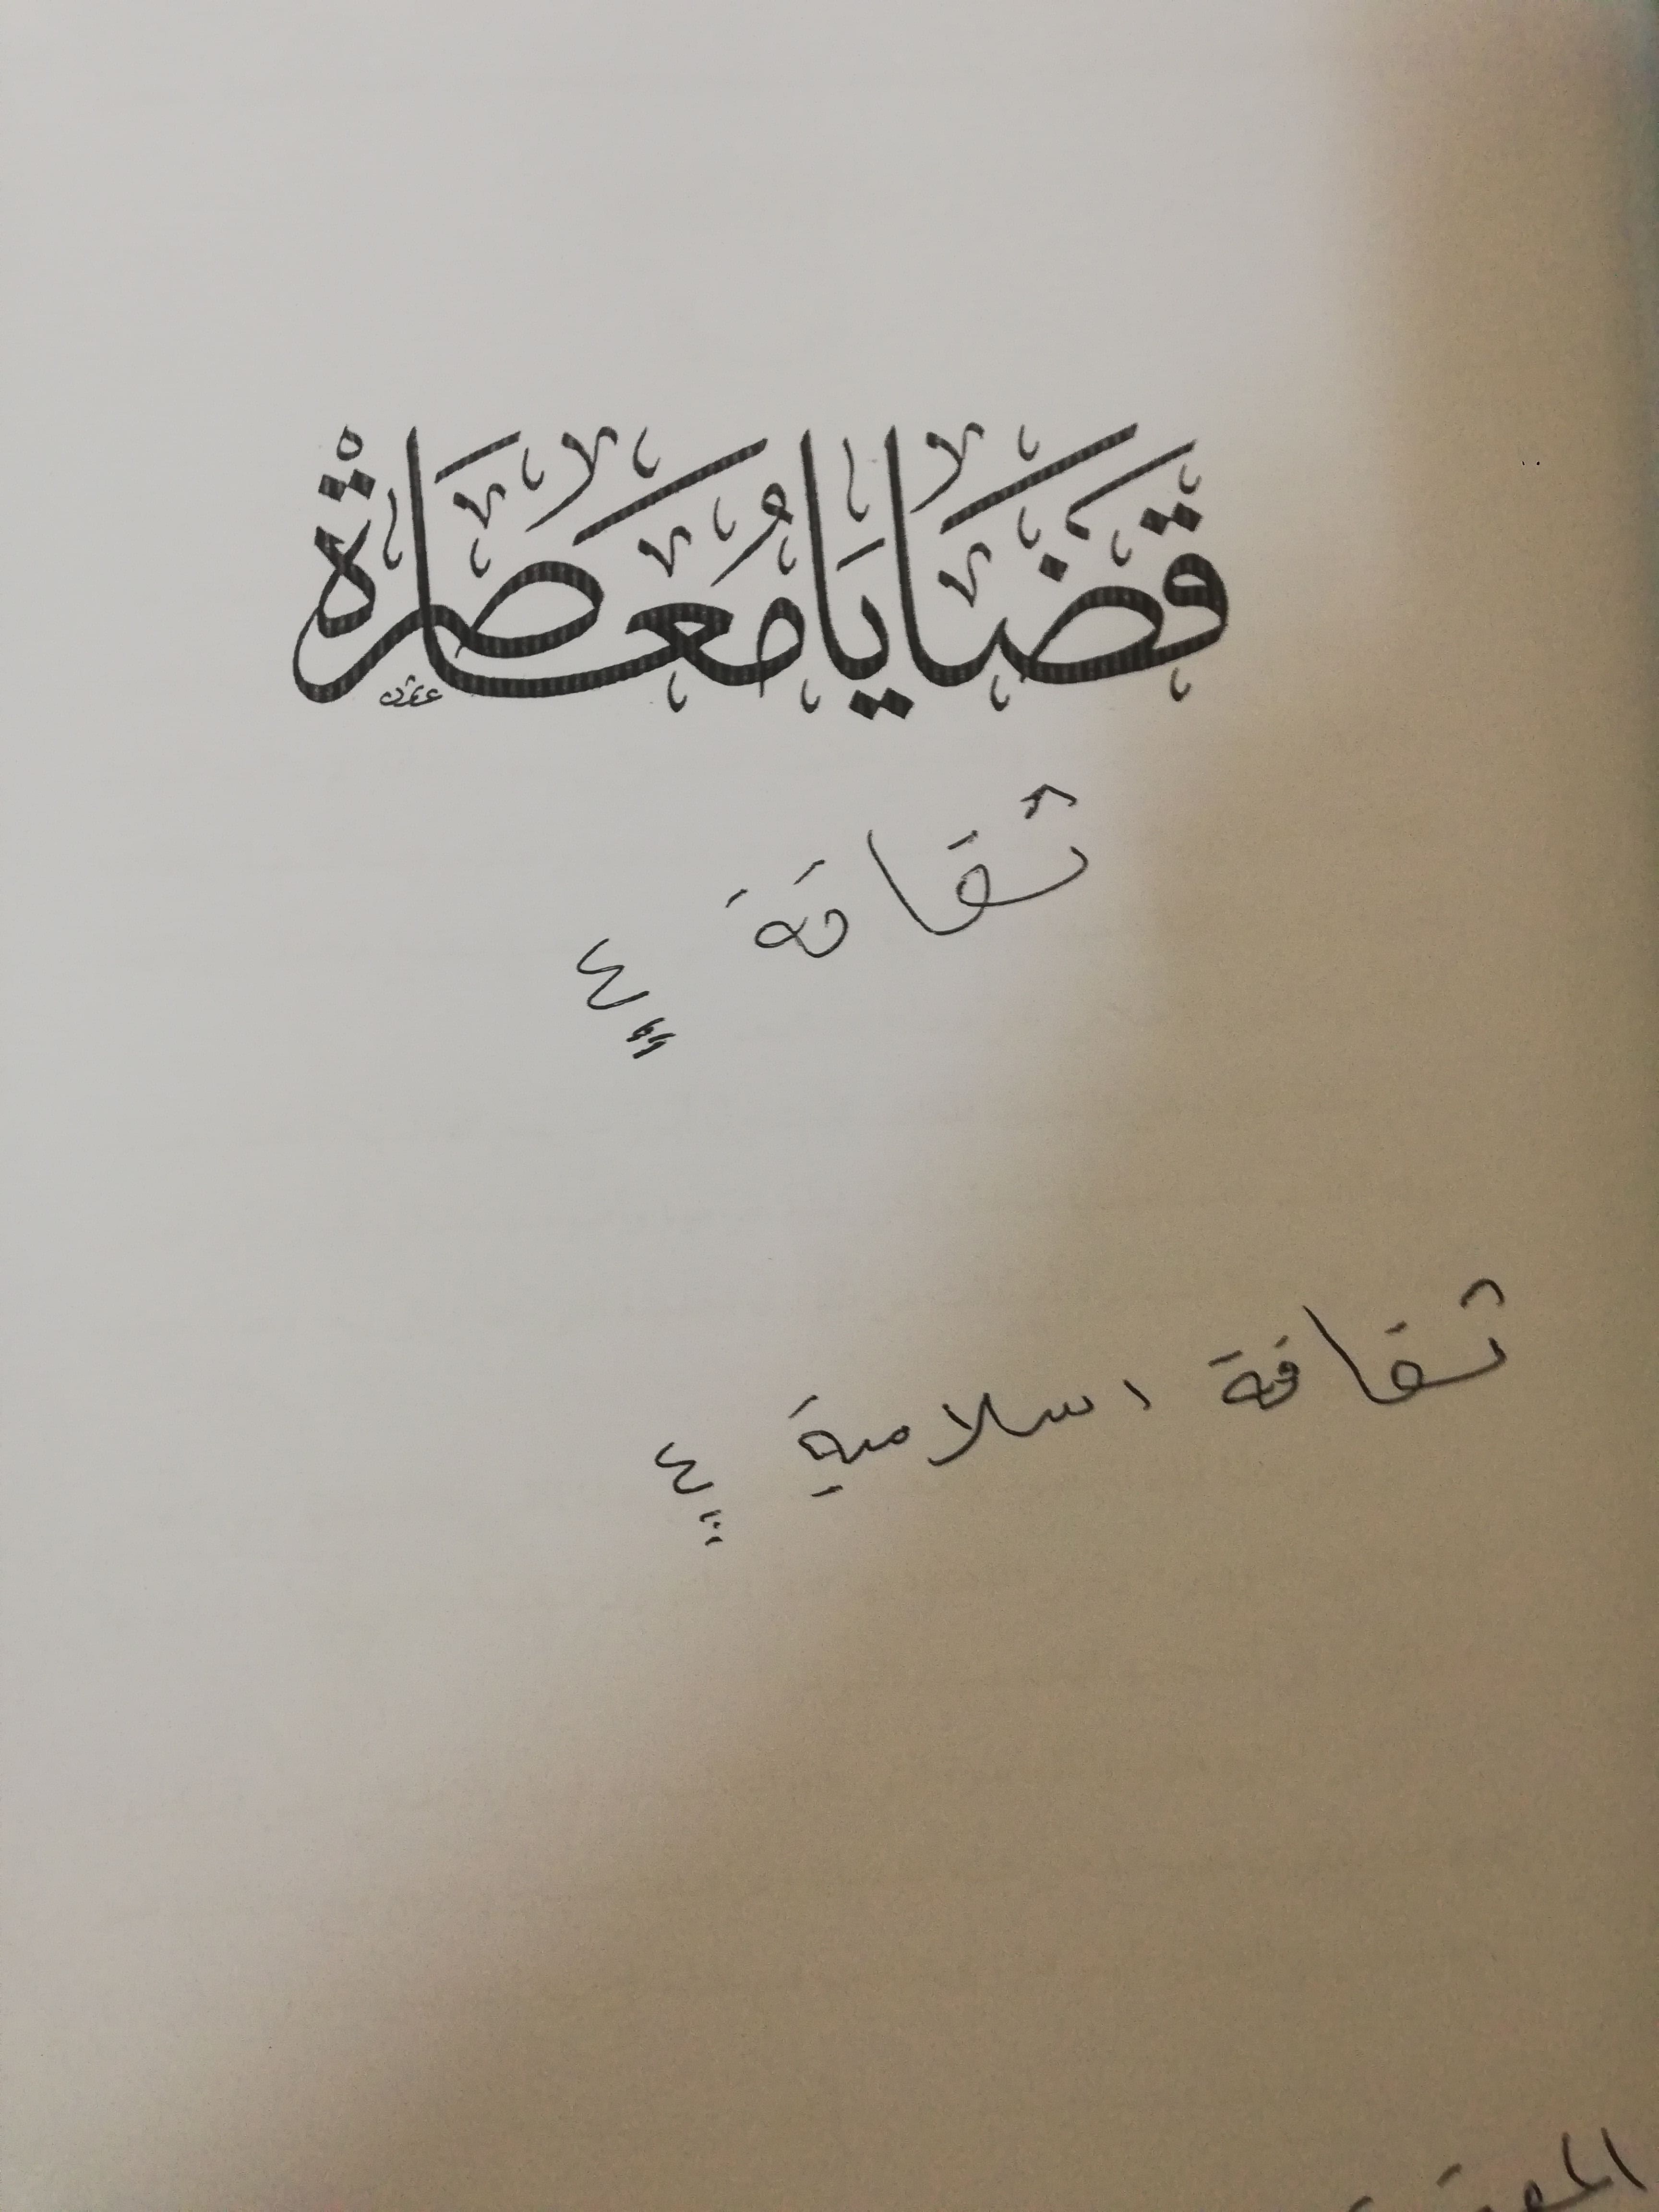 قَضَايَا مُعَاصَرَة
ثقافة ٤
ثقافة اسلامية ٤